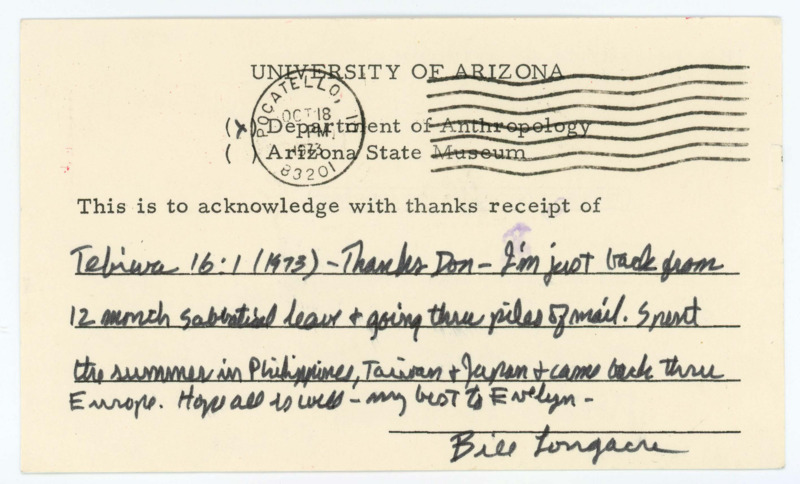 UNIVERSITY OF ARIZONA
POCATELLO, ID
OCT 18
PM
1973
83201
(x) Department of Anthropology
( ) Arizona State Museum
This is to acknowledge with thanks receipt of
Tebiwa 16:1 (1973) - Thanks Don - I'm just back from
12 month sabbatical leave & going thru piles of mail. Spent
the summer in Philippines, Taiwan & Japan & came back thru
Europe. Hope all is well - my best to Evelyn -
Bill Longacre